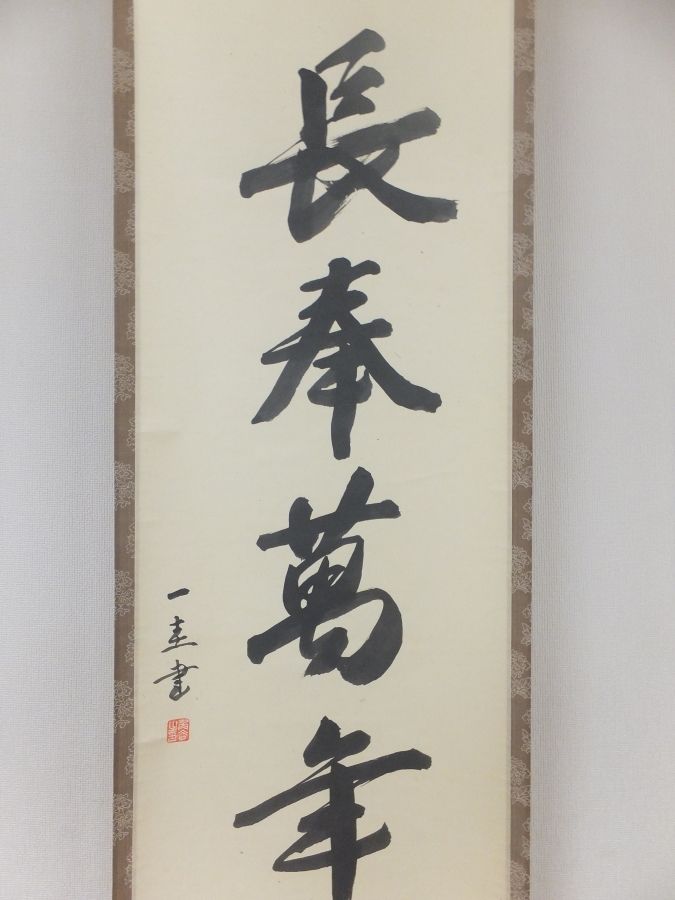 長奉萬年
一圭書